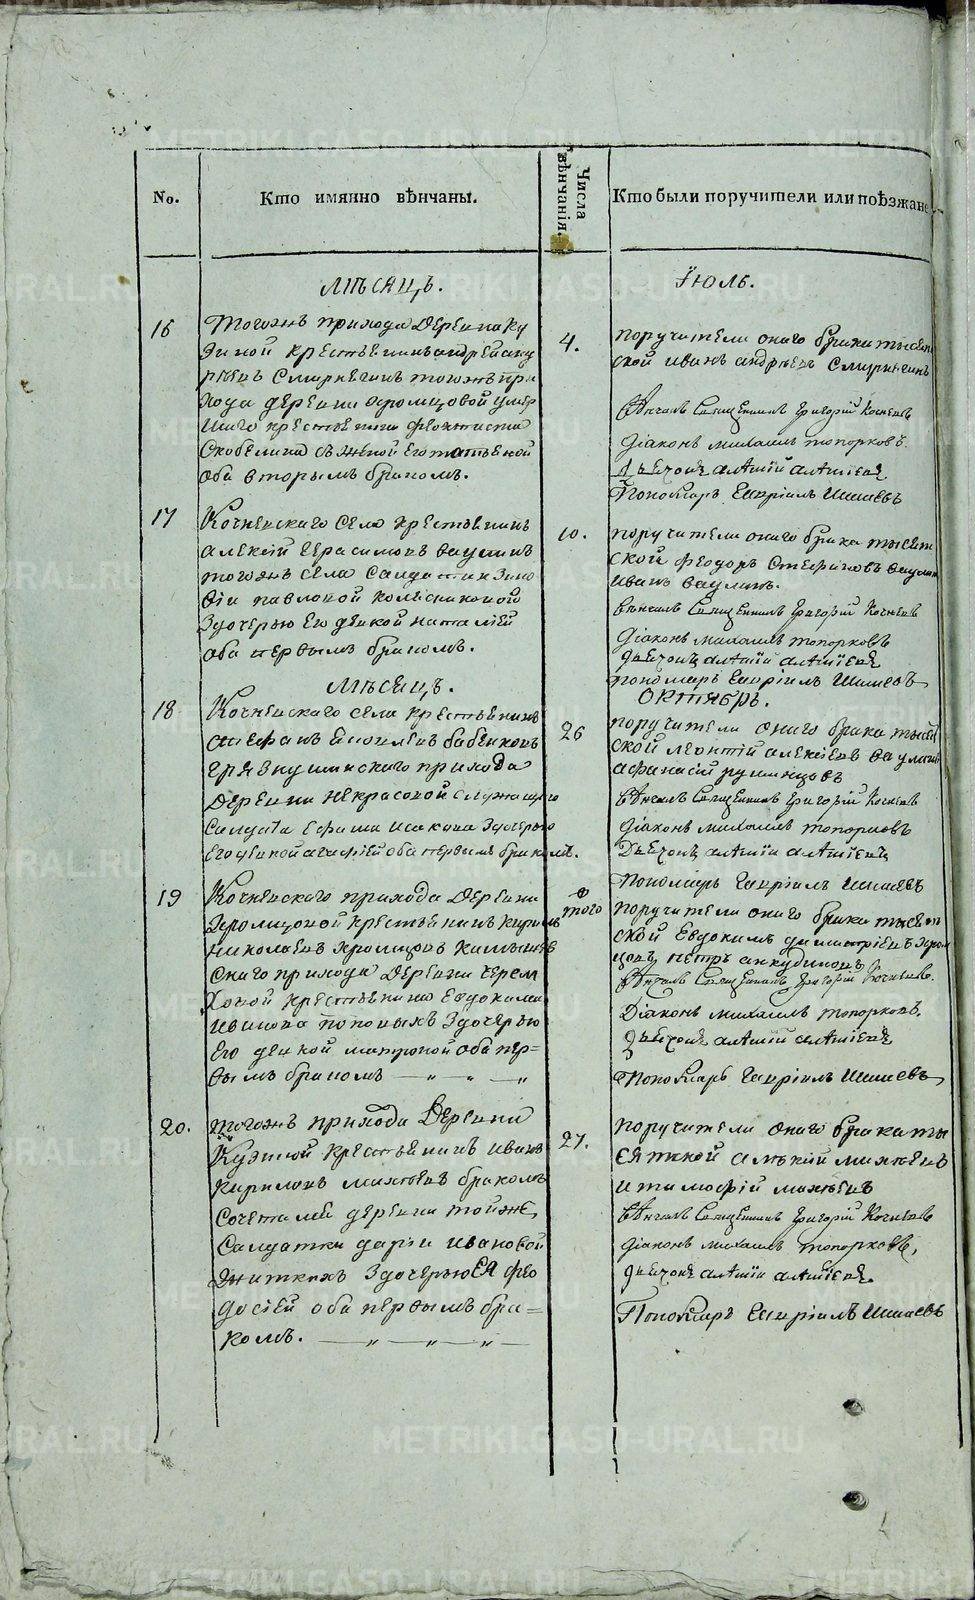 No.
Кто имянно вѣнчаны.
Числа вѣнчанія.
Кто были поручители или поѣзжане
Мѣсяцъ.
Июль.
16
Тогожъ прихода деревни Ку
зиной крестьянинъ андрей анд
рѣевъ Смирнягинъ тогожъ при
хода деревни хромцовой умер
шаго крестьянина феоктиста
Скобелина съ женой его татьяной
оба вторымъ бракомъ.
4.
поручители онаго брака тысяц
ской иванъ андрѣевъ Смирнягинъ
Вѣнчалъ Священникъ Григорій Кочневъ
Діаконъ михаилъ топорковъ
Дьячокъ алѣѯій алѣѯіевъ
Пономарь Гавріилъ Шишевъ
17
Кочневскаго села крестьянинъ
алексій Герасимовъ ваулинъ
тогожъ села Салдатки Зино
віи павловой Колесниковой
Здочерью Ея девкой наталіей
оба первымъ бракомъ.
10.
поручители онаго брака тысяц
ской феодоръ Стефановъ ваулинъ
иванъ ваулинъ.
вѣнчалъ Священникъ Григорій Кочневъ
Діаконъ михаилъ топорковъ
Дьячокъ алѣѯій алѣѯіевъ
пономарь Гавріилъ Шишевъ
Мѣсяцъ.
октябрь.
18
Кочневскаго села крестьянинъ
стефанъ бабенковъ
Грязнушинскаго прихода
деревни некрасовой служащаго
Салдата Ефима исакова Здочерью
его девкой агафіей оба первымъ бракомъ.
26
поручители онаго брака тысяц
ской леонтій алексіевъ ваулинъ
афанасій румянцовъ
Вѣнчалъ Священникъ Григорій Кочневъ
Діаконъ михаилъ топорковъ
Дьячокъ алѣѯій алѣѯіевъ
Пономарь Гавріилъ Шишевъ
19
Кочневскаго прихода деревни
хромцовой крестьянинъ Кирилъ
николаевъ хромцовъ Камышев
скаго прихода деревни черем
ховой крестьянина Евдокима
иванова поповыхъ Здочерью
Его девкой матроной оба пер=
вымъ бракомъ — „ — „ —
того
поручители онаго брака тысяц
ской Евдокимъ димитріевъ хром
цовъ петръ анкудиновъ
Вѣнчалъ Священникъ Григорій Кочневъ
Діаконъ михаилъ топорковъ.
Дьячокъ алѣѯій алѣѯіевъ
Пономарь Гавріилъ Шишевъ
20.
тогожъ прихода деревни
Кузиной крестьянинъ иванъ
кириловъ михѣевъ бракомъ
сочетался деревни тойже
Салдатки даріи ивановой
Здочерью Ея фео
досіей оба первымъ бра=
комъ. — „ — „ — „ —
27.
поручители онаго брака ты
сяцкой алѣкій михѣевъ
и тимофій михѣевъ
Вѣнчалъ Священникъ Григорій Кочневъ
Діаконъ михаилъ топорковъ,
Дьячокъ алѣѯій алѣѯіевъ.
Пономарь Гавріилъ Шишевъ
METRIKI.GASO-URAL.RU